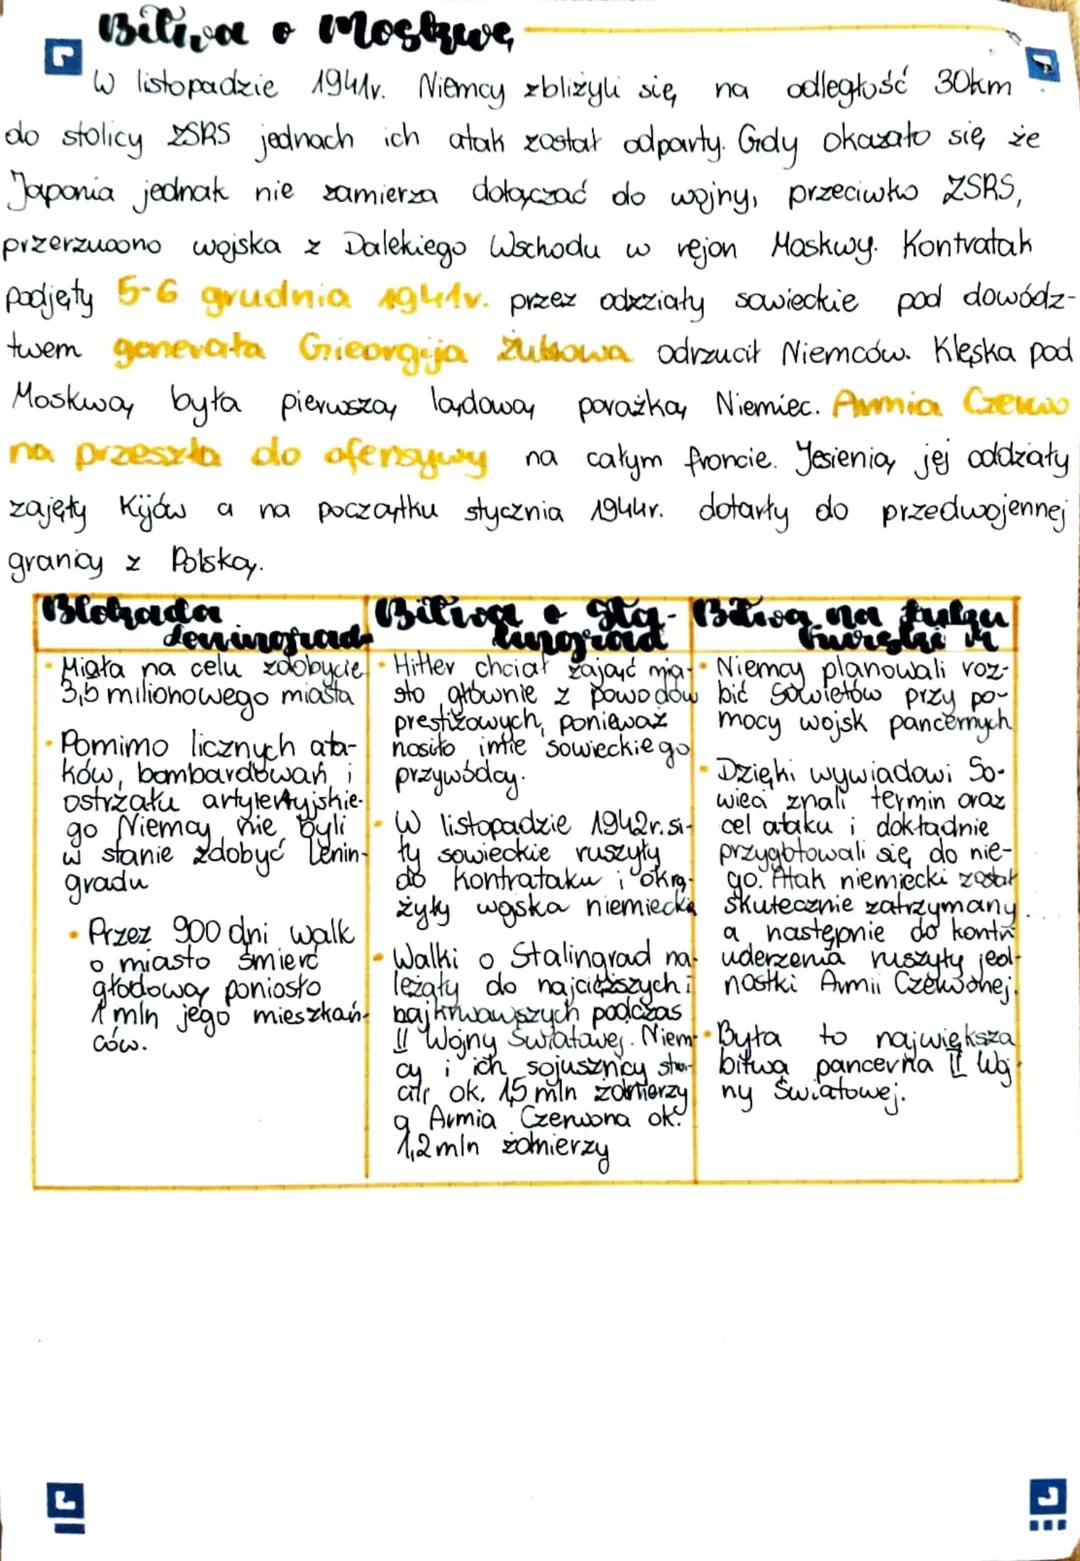 Bitwa o Moskwę
W listopadzie 1941r. Niemcy zbliżyli się na odległość 30km
do stolicy ZSRS jednach ich atak został odparty. Gdy okazało się że
Japonia jednak nie zamierza dołączać do wojny, przeciwko ZSRS,
przerzucono wojska z Dalekiego Wschodu w rejon Moskwy. Kontratak
podjęty 5-6 grudnia 1941r. przez oddziały sowieckie pod dowódz-
twem generała Gieorgija Żukowa odrzucił Niemców. Klęska pod
Moskwą była pierwszą lądową porażką Niemiec. Armia Czerwo
na przeszła do ofensywy na całym froncie. Jesienią jej oddziały
zajęły Kijów a na początku stycznia 1944r. dotarły do przedwojennej
granicy z Polską.
Blokada
Leningradu
• Miała na celu zdobycie
3,5 milionowego miasta
• Pomimo licznych ata-
ków, bombardowań i
ostrzału artyleryjskie-
go Niemcy nie byli
w stanie zdobyć Lenin-
gradu
• Przez 900 dni walk
o miasto śmierć
głodową poniosło
1 mln jego mieszkań-
ców.
Bitwa o Sta-
lingrad
• Hitler chciał zająć mia-
sto głównie z powodów
prestiżowych, ponieważ
nosiło imię sowieckiego
przywódcy.
• W listopadzie 1942r. si-
ły sowieckie ruszyły
do kontrataku i okrą-
żyły wojska niemieckie
• Walki o Stalingrad na-
leżały do najcięższych i
najkrwawszych podczas
II Wojny Światowej. Niem-
cy i ich sojusznicy stra-
cili ok. 1,5 mln żołnierzy
a Armia Czerwona ok.
1,2 mln żołnierzy
Bitwa na Łuku
Kurskim
• Niemcy planowali roz-
bić Sowietów przy po-
mocy wojsk pancernych
• Dzięki wywiadowi So-
wieci znali termin oraz
cel ataku i dokładnie
przygotowali się do nie-
go. Atak niemiecki został
skutecznie zatrzymany
a następnie do kontr
uderzenia ruszyły jed-
nostki Armii Czerwonej.
• Była to największa
bitwa pancerna II Woj
ny Światowej.